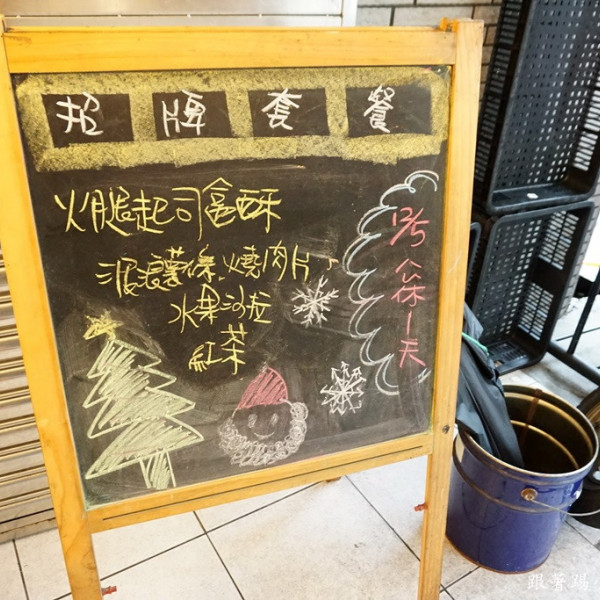 招牌套餐
火腿起司窩酥
波浪薯條、燒肉片、
水果沙拉
紅茶
12/5 公休1天
跟著踢